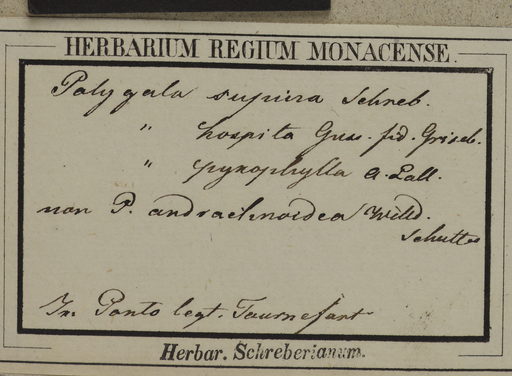 HERBARIUM REGIUM MONACENSE.
Polygala supina Schreb.
" hospita Guss. fid. Griseb.
" pyxophylla A. Lall.
non P. andrachnoidea Willd.
In Ponto legt. Tournefort
Herbar. Schreberianum.